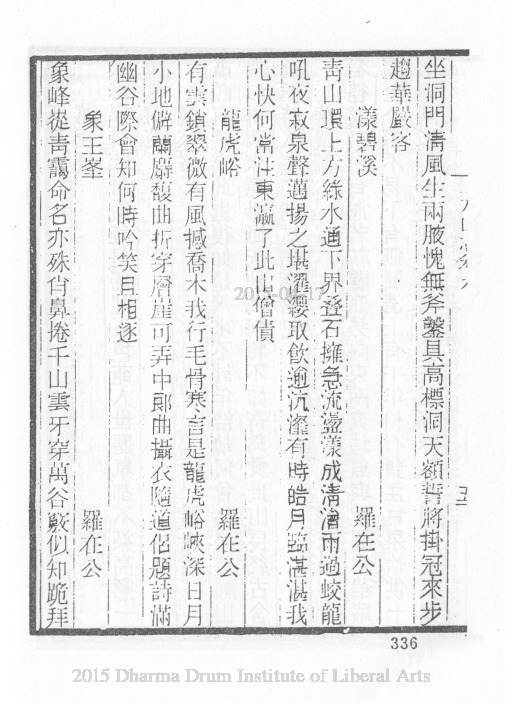 坐洞門清風生兩腋愧無斧鑿具高標洞天額誓將掛冠來步
趨華嚴客
漾碧溪 羅在公
靑山環上方綠水通下界叠石擁急流盪漾成淸澮雨過蛟龍
吼夜寂泉聲邁揚之堪濯纓取飲逾沆瀣有時皓月臨湛湛我
心快何當注東瀛了此山僧債
龍虎峪 羅在公
有雲鎖翠微有風撼喬木我行毛骨寒言是龍虎峪峽深日月
小地僻蘭麝馥曲折穿層崖可弄中郞曲攝衣隨道侶題詩滿
幽谷際會知何時吟笑且相逐
象王峯 羅在公
象峰從靑靄命名亦殊肖鼻捲千山雲牙穿萬谷竅似知跪拜
五
336
2015 Dharma Drum Institute of Liberal Arts